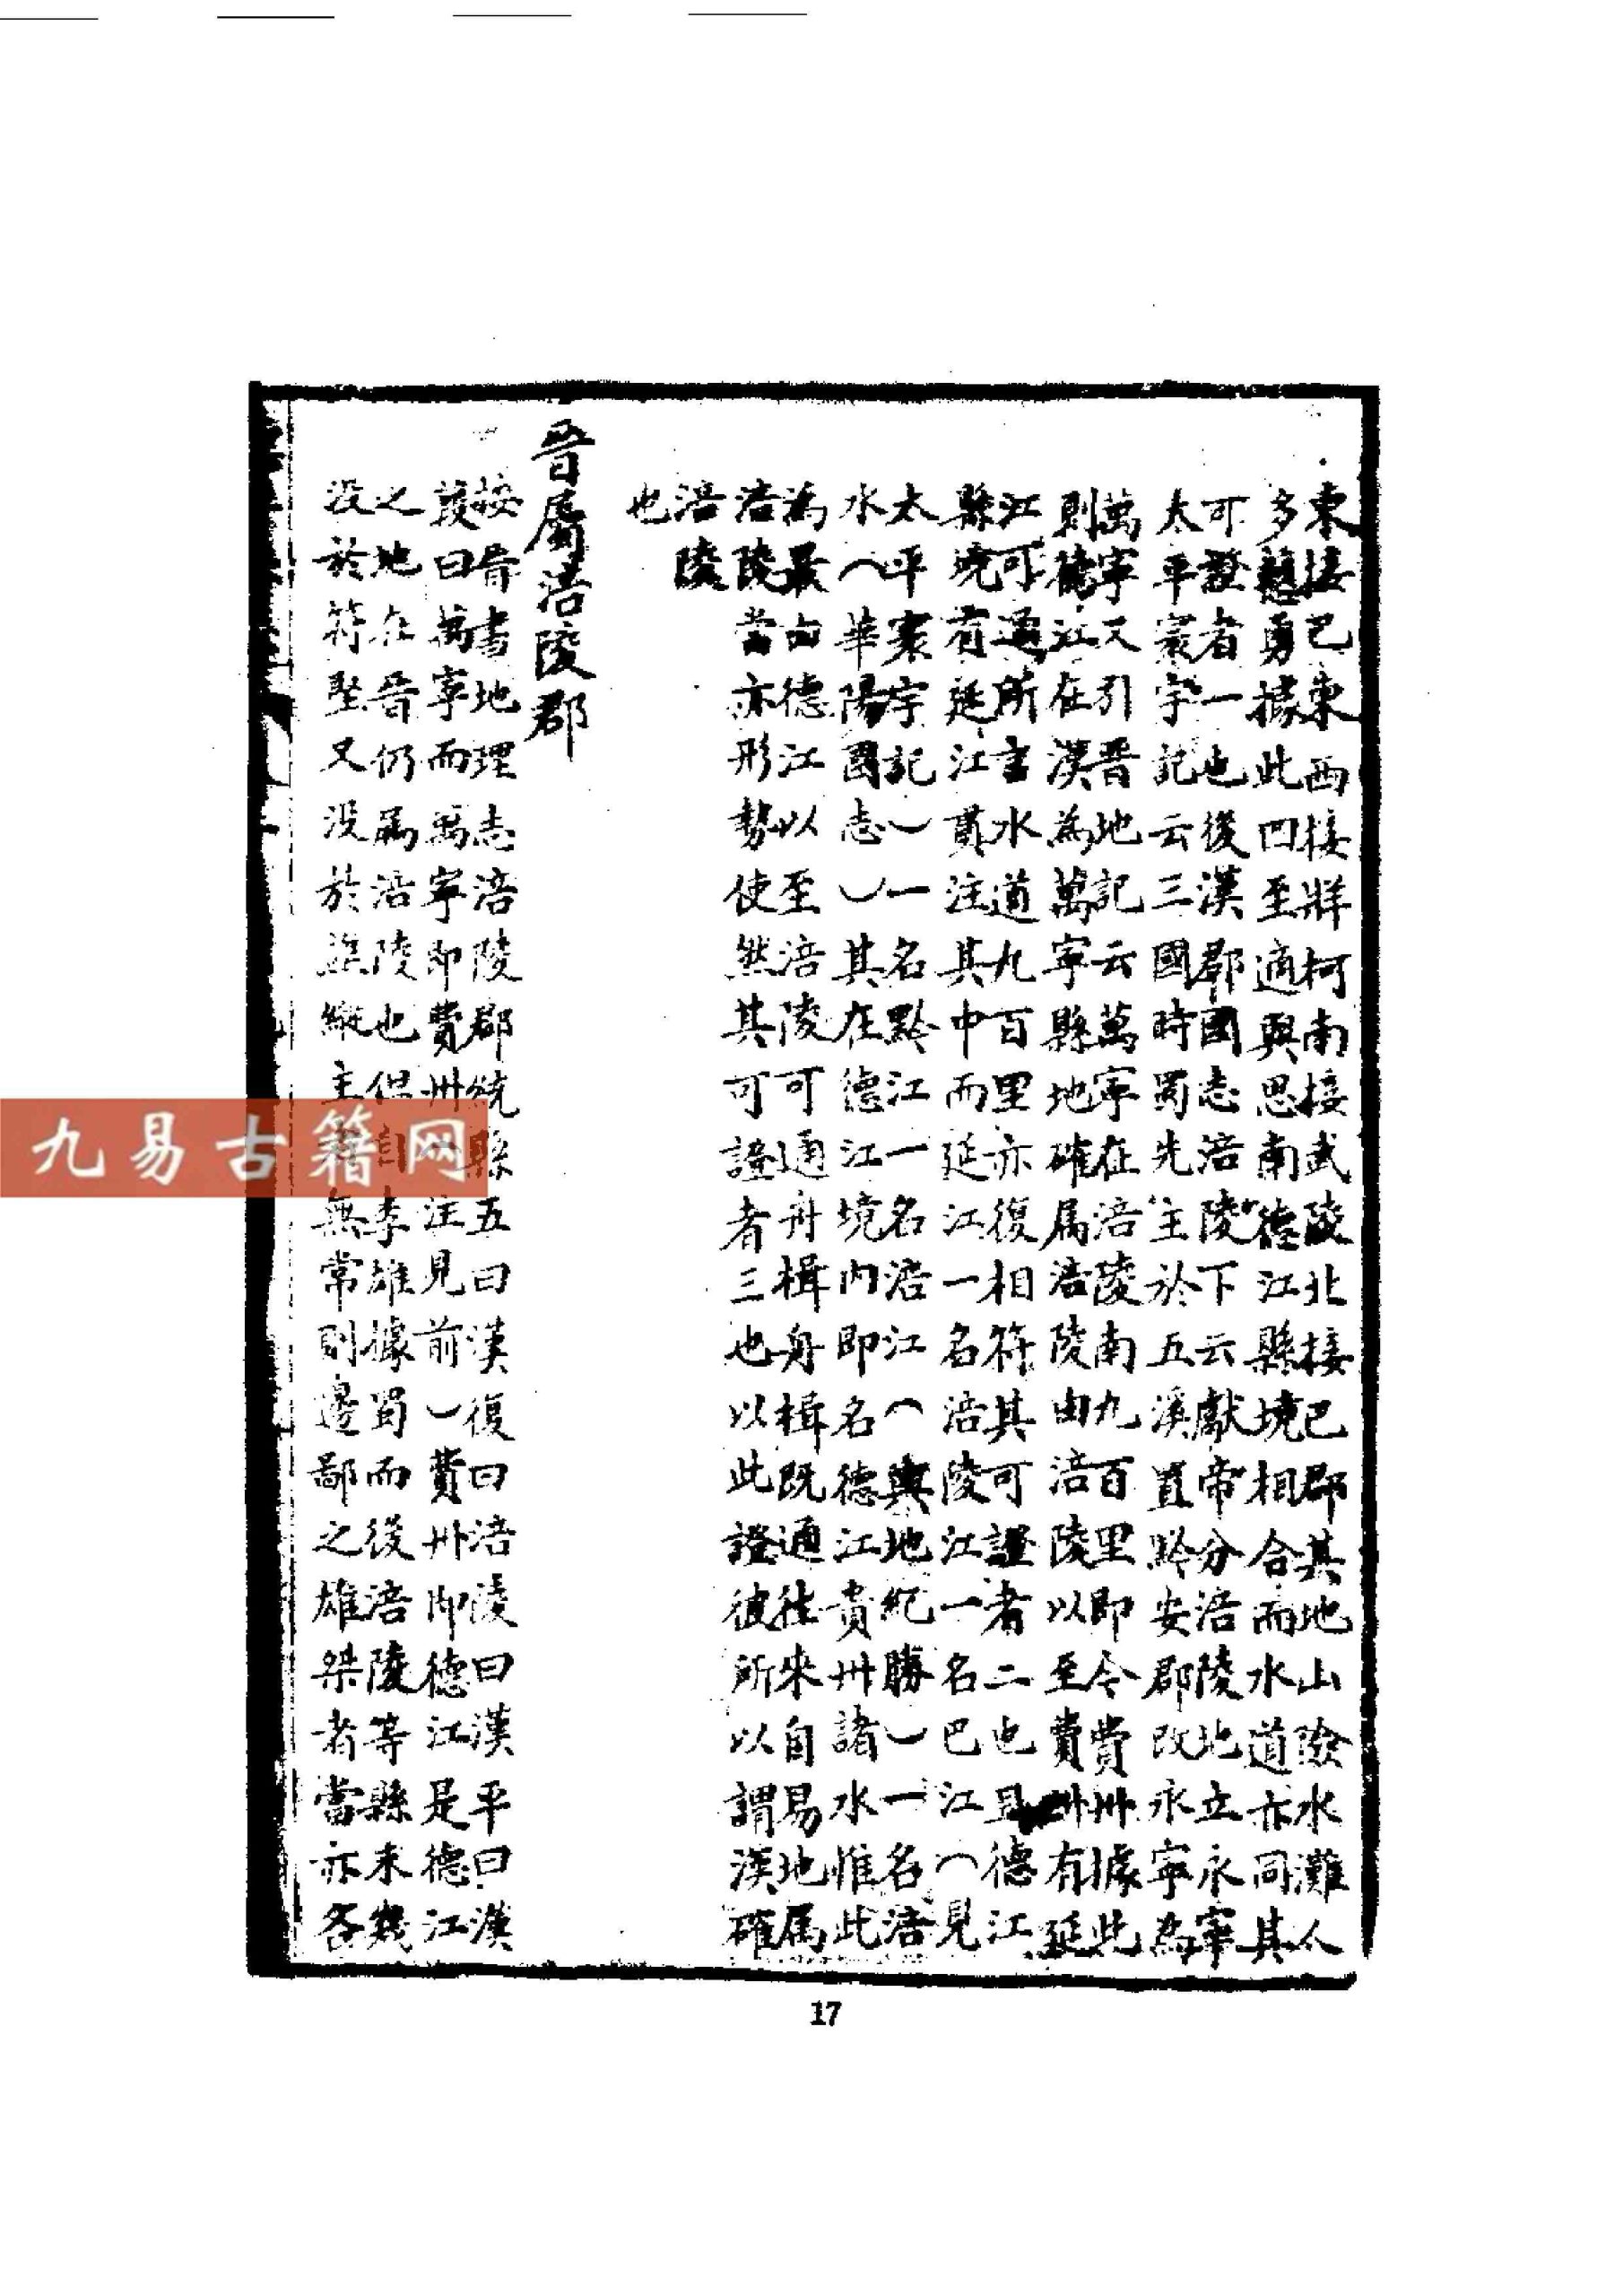 東接巴東西接牂柯南接武陵北接巴郡其地山險水灘人
多戇勇據此四至適與思南德江縣境相合而水道亦同其
可證者一也後漢郡國志涪陵下云獻帝分涪陵地立永寧
太平寰宇記云三國時蜀先主於五溪置黔安郡改永寧為
萬寧又引晋地記云萬寧在涪陵南九百里即今費州據此
則德江在漢為萬寧縣地確属涪陵由涪陵以至費州有延
江可通所言水道九百里亦復相符其可證者二也且德江
縣境有延江貫注其中而延江一名涪陵江一名巴江（見
太平寰宇記）一名黔江一名涪江（輿地紀勝）一名涪
水（華陽國志）其在德江境内即名德江貴州諸水惟此
為最由德江以至涪陵可通舟楫舟楫既通往來自易地属
涪陵當亦形勢使然其可證者三也以此證彼所以謂漢確
涪陵
也
晋屬涪陵郡
按晋書地理志涪陵郡統縣五曰漢復曰涪陵曰漢平曰漢
葭曰萬寧而萬寧即費州注見前）費州即德江是德江
之地在晋仍為涪陵也李雄據蜀而後涪陵等縣未幾
没於符堅又没於縱主無常則邊鄙之雄桀者當亦各
17
九易古籍网